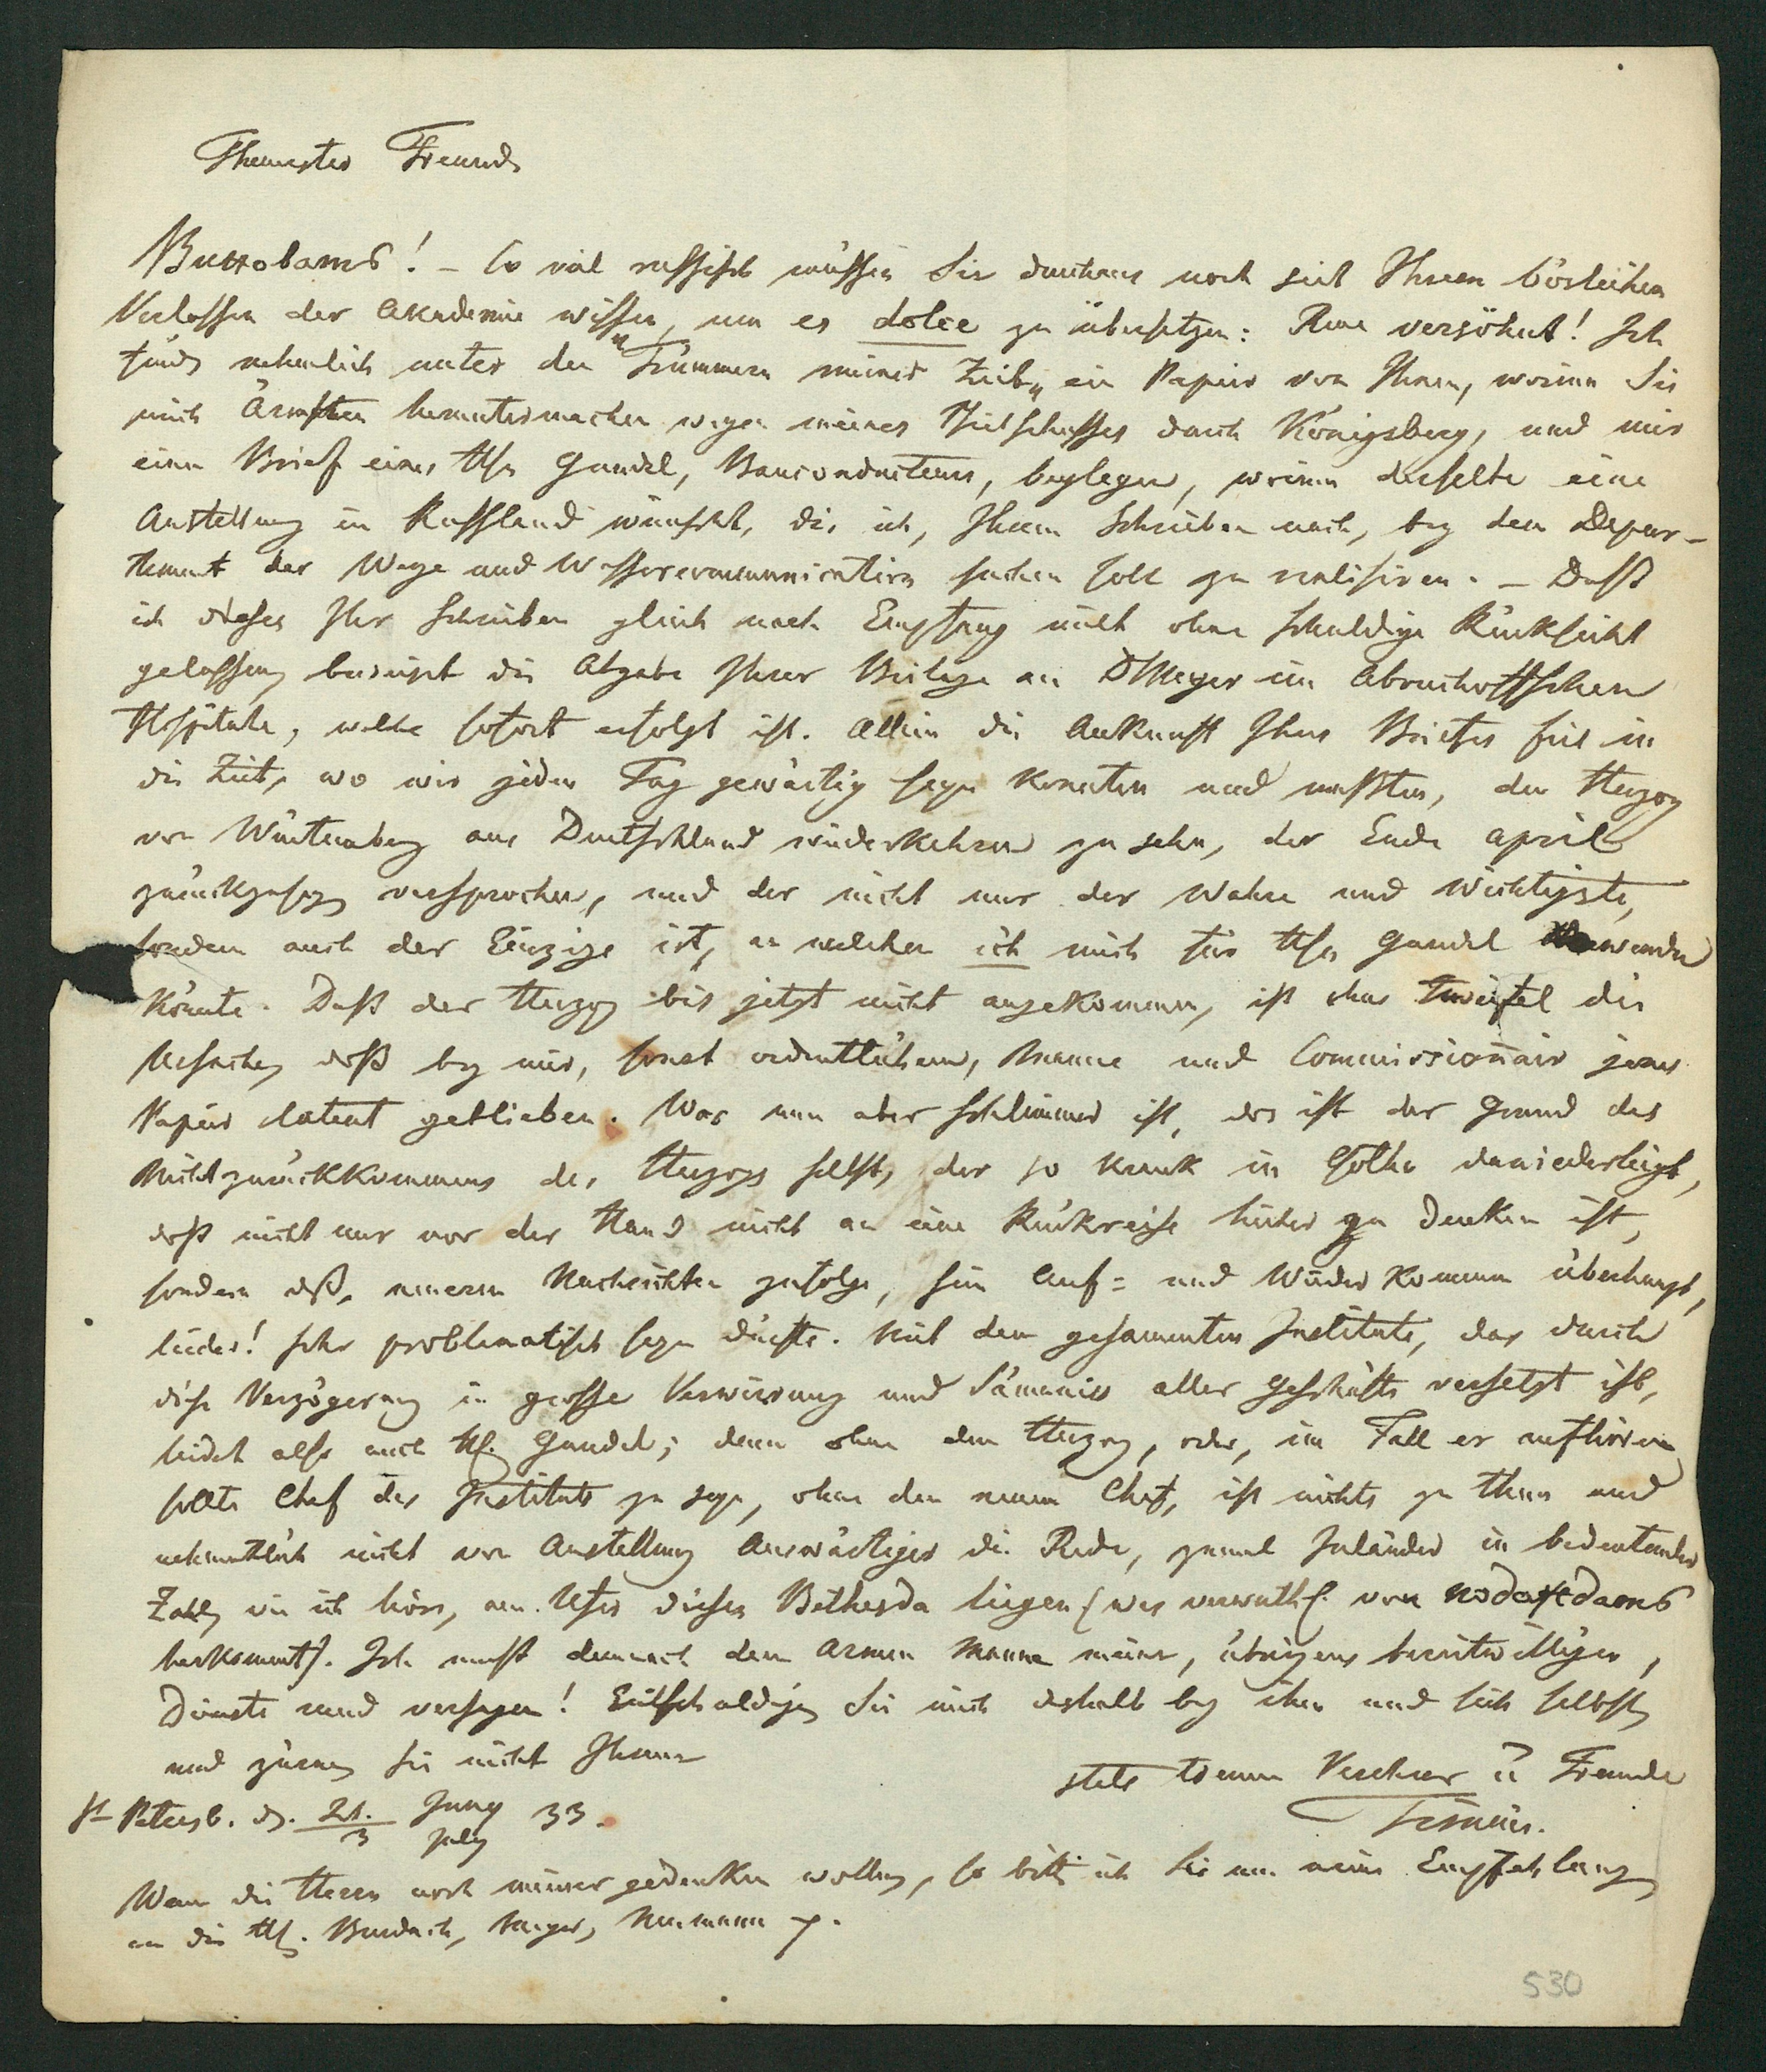 Theuerster Freund
Виноватъ! – So viel russisch müssen Sie durchaus noch seit Ihrem böslichen
Verlassen der Akademie wissen, um es dolce zu übersetzen: Reue versöhnt! Ich
finde nehmlich unter den „Trümmern meiner Zeit„ ein Papier von Ihnen, worinn Sie
mich Ärmsten heruntermachen wegen meines Schusses durch Königsberg, und mir
einen Brief eines Hfn Gandil, Bauconducteurs, beylegen, worinn derselbe eine
Anstellung in Russland wünscht, die ich, Ihrem Schreiben nach, bey dem Depar-
tement der Wege und Wassercommunication suchen soll zu realisiren. – Dasß
ich dieses Ihr Schreiben gleich nach Empfang nicht ohne schuldige Rücksicht
gelassen, beweist die Abgabe Ihrer Beilage an D Meyer im Abuchoffschen
Hospitale, welche sofort erfolgt ist. Allein die Ankunft Ihres Briefes fiel in
die Zeit, wo wir jeden Tag gewärtig seyn konnten und mußten, den Herzog
von Würtemberg aus Deutschland wiederkehren zu sehn, der Ende April
zurückzuseyn versprochen, und der nicht nur der Wahre und Wichtigste,
sondern auch der Einzige ist, an welchen ich mich für Hfn Gandil wenden
könnte. Daß der Herzog bis jetzt nicht angekommen, ist ohne Zweifel die
Ursache, daß bey mir, sonst ordentlichem, Manne und Commissionair jenes
Papier latent geblieben. Was nun aber schlimmer ist, das ist der Grund des
Nichtzurückkommens des Herzogs selbst, der so krank in Gotha darniederliegt,
daß nicht nur vor der Hand nicht an eine Rückreise hieher zu denken ist,
sondern daß, neueren Nachrichten zufolge, sein Auf- und Wiederkommen überhaupt,
leider! sehr problematisch seyn dürfte. Mit dem gesammten Institute, das durch
diese Verzögerung in grosse Verwirrung und Säumniss aller Geschäfte versetzt ist,
leidet also auch Hf. Gandil; denn ohne den Herzog, oder, im Fall er aufhören
sollte Chef des Instituts zu seyn, ohne den neuen Chef, ist nichts zu thun und
nahmentlich nicht von Anstellung Auswärtiger die Rede, zumal Inländer in bedeutender
Zahl, wie ich höre, am Ufer dieses Bethesda liegen (was vermuthl. von
herkommt). Ich muß demnach dem armen Manne meine, übrigens bereitwilligen,
Dienste rund versagen! Entschuldigen Sie mich deshalb bey ihm und sich selbst,
und zürnen Sie nicht Ihrem
stets treuen Verehrer u Freunde
Trinius.
St Petersb. d. 21. Juny 33.
3 July
Wenn die Herrn noch meiner gedenken wollen, so bitte ich Sie um meine Empfehlung
an die HH. Burdach, Meyer, Neumann p.
530